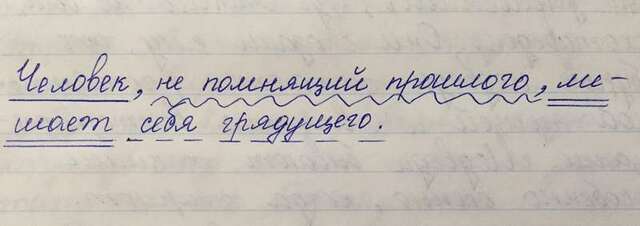 Человек, не помнящий прошлого, ли-
шает себя грядущего.